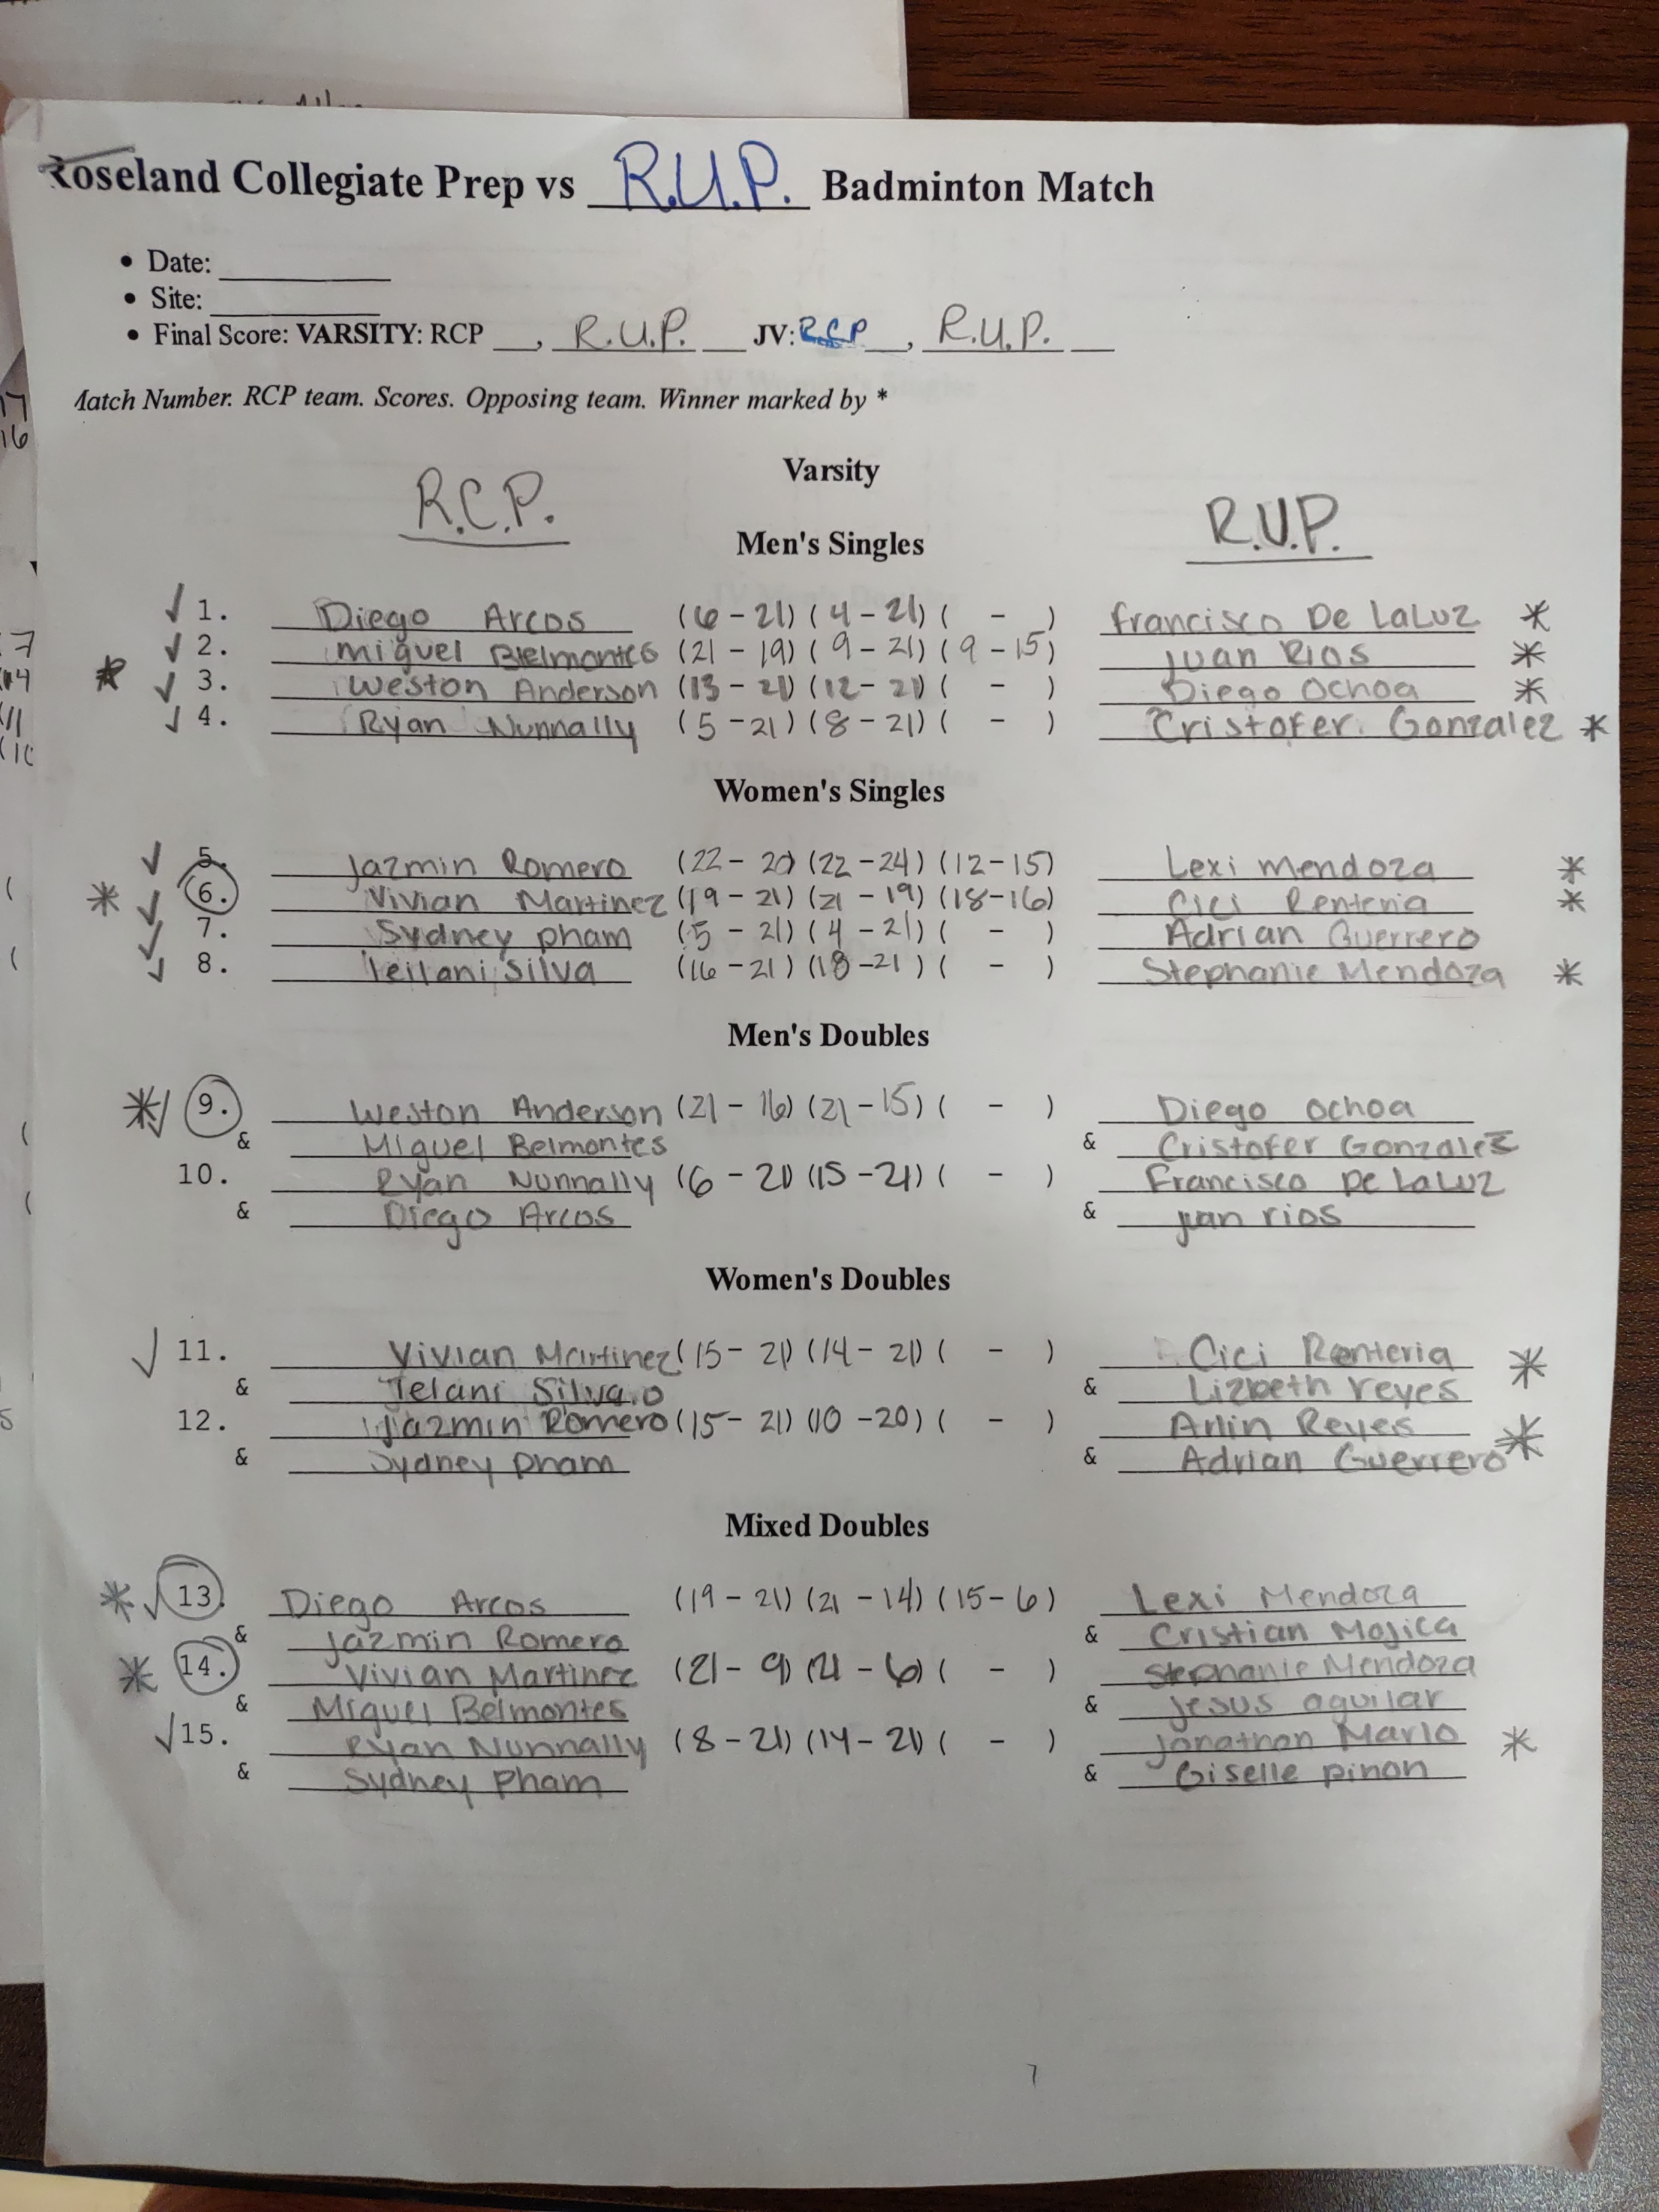 Roseland Collegiate Prep vs R.U.P. Badminton Match
• Date:
• Site:
• Final Score: VARSITY: RCP __, R.U.P. __ JV: RCP __, R.U.P. __
Match Number. RCP team. Scores. Opposing team. Winner marked by *
Varsity
R.C.P.
R.U.P.
Men's Singles
✓ 1. Diego Arcos (6 - 21) (4 - 21) ( - ) Francisco De LaLuz *
✓ 2. Miguel Belmontes (21 - 19) (9 - 21) (9 - 15) Juan Rios *
* ✓ 3. Weston Anderson (13 - 21) (12 - 21) ( - ) Diego Ochoa *
✓ 4. Ryan Nunnally (5 - 21) (8 - 21) ( - ) Cristofer. Gonzalez *
Women's Singles
✓ 5. Jazmin Romero (22 - 20) (22 - 24) (12 - 15) Lexi Mendoza *
* ✓ 6. Vivian Martinez (19 - 21) (21 - 19) (18 - 16) Cici Renteria *
✓ 7. Sydney pham (5 - 21) (4 - 21) ( - ) Adrian Guerrero
✓ 8. leilani silva (16 - 21) (18 - 21) ( - ) Stephanie Mendoza *
Men's Doubles
* ✓ 9. Weston Anderson (21 - 16) (21 - 15) ( - ) Diego Ochoa
& Miguel Belmontes & Cristofer Gonzalez
10. Ryan Nunnally (6 - 21) (15 - 21) ( - ) Francisco De LaLuz
& Diego Arcos & juan rios
Women's Doubles
✓ 11. Vivian Martinez (15 - 21) (14 - 21) ( - ) Cici Renteria *
& Telani Silva & Lizbeth reyes
12. Jazmin Romero (15 - 21) (10 - 20) ( - ) Arlin Reyes *
& Sydney pham & Adrian Guerrero
Mixed Doubles
* ✓ 13. Diego Arcos (19 - 21) (21 - 14) (15 - 6) Lexi Mendoza
& Jazmin Romero & Cristian Mojica
* 14. Vivian Martinez (21 - 9) (21 - 6) ( - ) Stephanie Mendoza
& Miguel Belmontes & Jesus aguilar
✓ 15. Ryan Nunnally (8 - 21) (14 - 21) ( - ) Jonathan Marlo *
& Sydney Pham & Giselle pinon
7